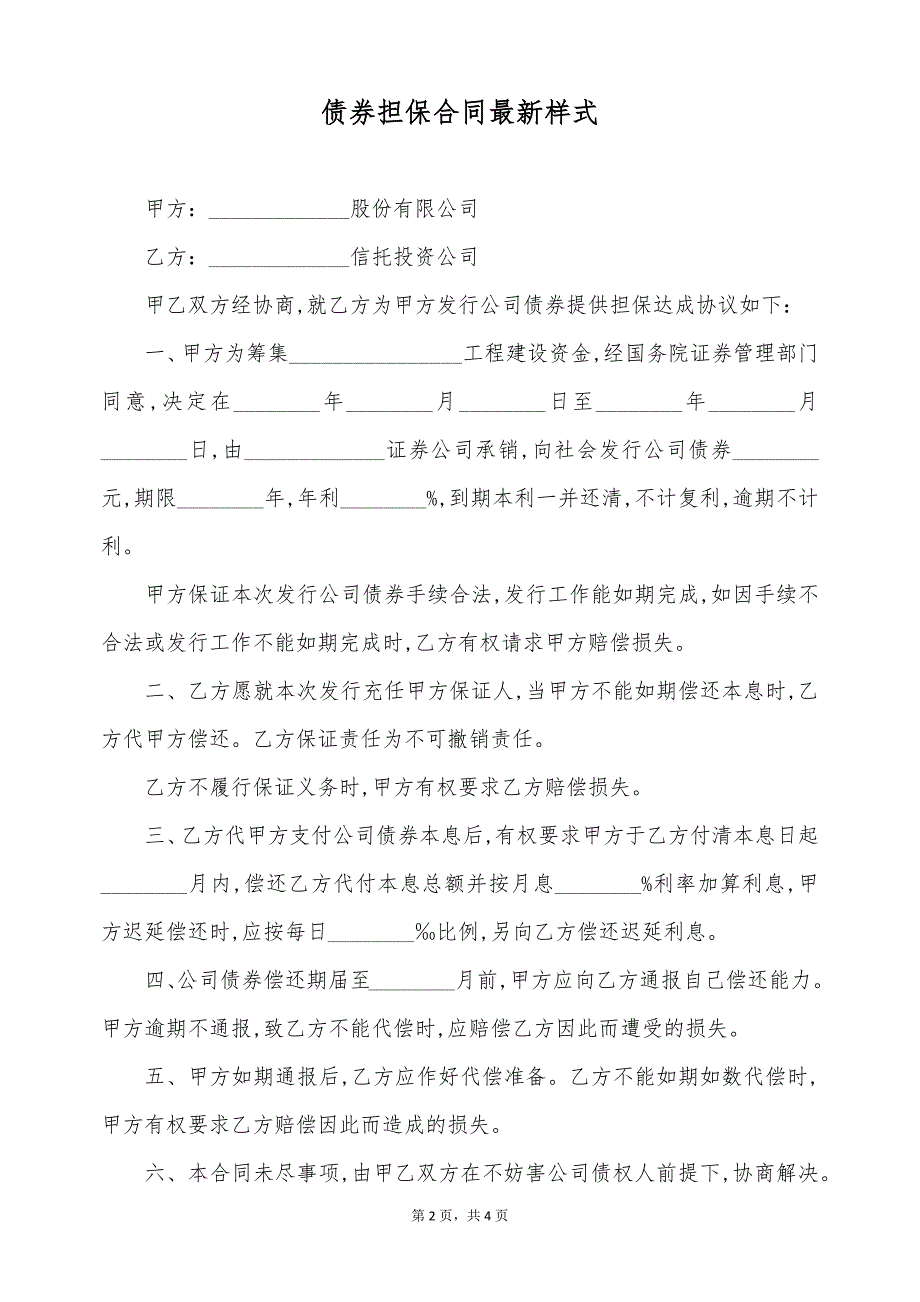 债券担保合同最新样式
甲方：_____________股份有限公司
乙方：_____________信托投资公司
甲乙双方经协商,就乙方为甲方发行公司债券提供担保达成协议如下：
一、甲方为筹集________________工程建设资金,经国务院证券管理部门
同意,决定在________年________月________日至________年________月
________日,由_____________证券公司承销,向社会发行公司债券________
元,期限________年,年利________%,到期本利一并还清,不计复利,逾期不计
利。
甲方保证本次发行公司债券手续合法,发行工作能如期完成,如因手续不
合法或发行工作不能如期完成时,乙方有权请求甲方赔偿损失。
二、乙方愿就本次发行充任甲方保证人,当甲方不能如期偿还本息时,乙
方代甲方偿还。乙方保证责任为不可撤销责任。
乙方不履行保证义务时,甲方有权要求乙方赔偿损失。
三、乙方代甲方支付公司债券本息后,有权要求甲方于乙方付清本息日起
________月内,偿还乙方代付本息总额并按月息________%利率加算利息,甲
方迟延偿还时,应按每日________‰比例,另向乙方偿还迟延利息。
四、公司债券偿还期届至________月前,甲方应向乙方通报自己偿还能力。
甲方逾期不通报,致乙方不能代偿时,应赔偿乙方因此而遭受的损失。
五、甲方如期通报后,乙方应作好代偿准备。乙方不能如期如数代偿时,
甲方有权要求乙方赔偿因此而造成的损失。
六、本合同未尽事项,由甲乙双方在不妨害公司债权人前提下,协商解决。
第 2 页，共 4 页